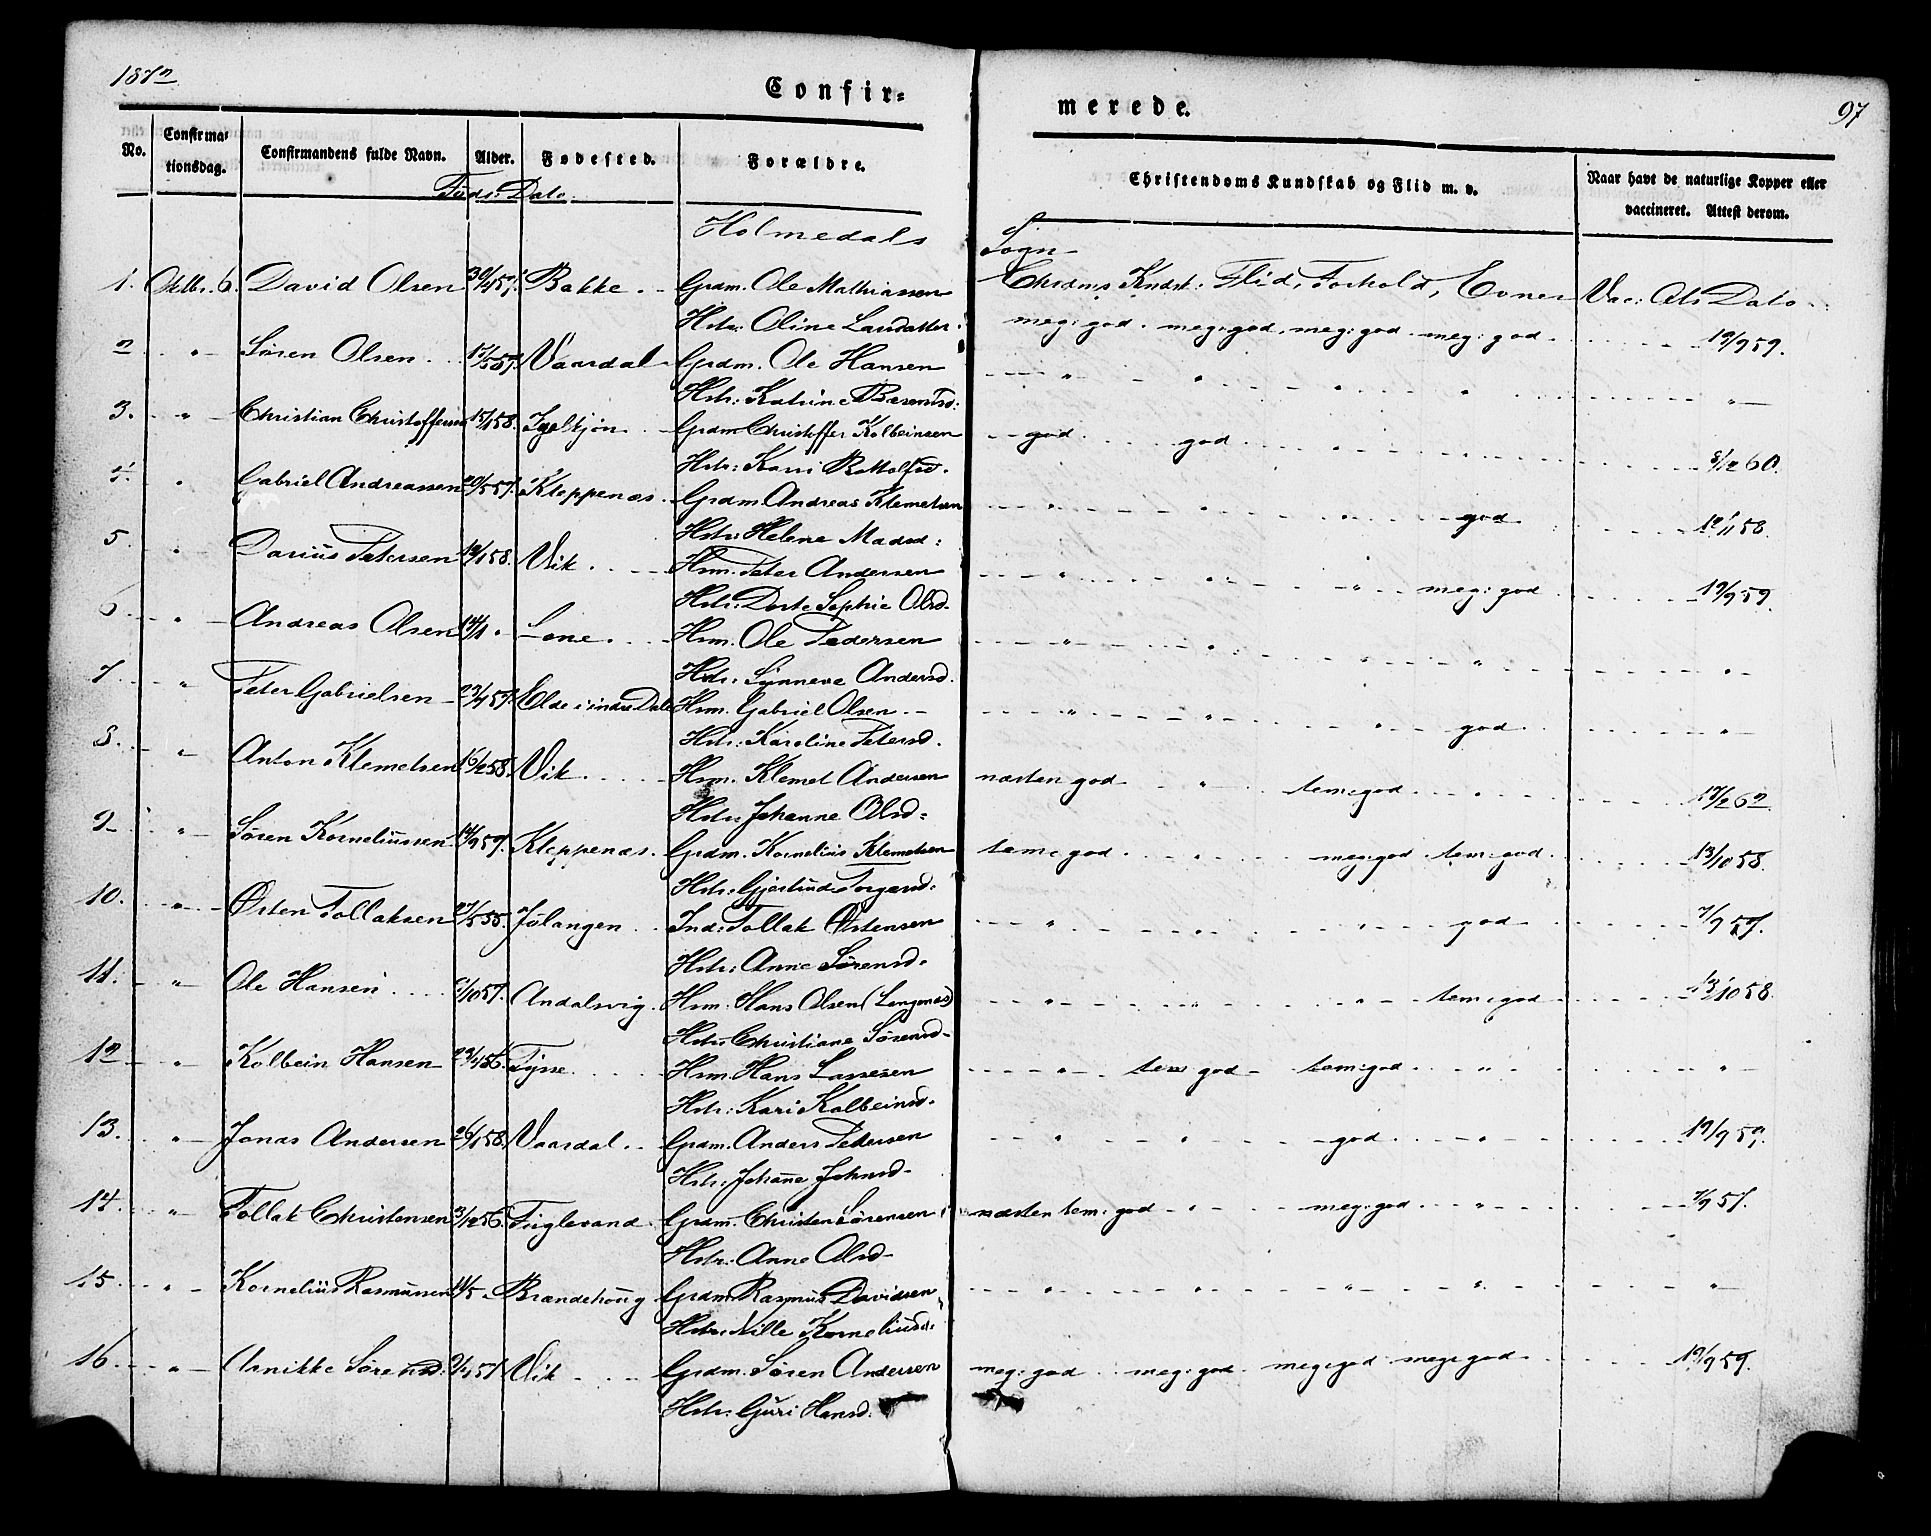 1872
Confir-
merede.
97
No.
Confirma-
tionsdag.
Confirmandens fulde Navn.
Alder.
Fødested.
Forældre.
Christendoms Kundskab og Flid m. v.
Naar havt de naturlige Kopper eller
vaccineret. Attest derom.
Føds: Dato.
Holmedals Sogn
Chrdms Kndsk: Flid, Forhold, Evner Vac: Ats Dato
1. Oktbr. 6. David Olsen 30/4 57. Bakke. Grdm. Ole Mathiassen
Hstr: Oline Larsdatter. meg: god. meg: god. meg: god. meg: god. 19/9 59.
2 " Søren Olsen 17/5 57. Vaardal Grdm. Ole Hansen
Hstr: Katrine Berentsd: " " " " "
3. " Christian Christoffersen 15/1 58. Grdm Christoffer Kolbeinsen
Hstr: Kari Bottolfsd. god god 8/12 60.
4. " Gabriel Andreassen 20/5 57. Kleppenæs. Grdm Andreas Klemetsen
Hstr: Helene Madsd: " " " god 12/11 58.
5. " Darius Petersen 12/1 58. Vik. Hsm. Peter Andersen
Hstr: Dorte Sophie Olsd. " " " meg: god 19/9 59.
6 " Andreas Olsen 14/1 " Lone. Hsm. Ole Pedersen
Hstr: Synneve Andersd. " " " " "
7. " Peter Gabrielsen 23/4 57. Elde i indre Dale Hsm. Gabriel Olsen
Hstr: Karoline Petersd. " " " god "
8. " Anton Klemetsen 16/2 58. Vik. Hsm. Klemet Andersen
Hstr: Johanne Olsd: næsten god " tem: god " 17/2 62
9 " Søren Korneliussen 14/9 57. Kleppenæs. Grdm. Kornelius Klemetsen
Hstr: Gjertrud tem: god " meg: god tem: god 13/10 58.
10. " Østen Tollaksen 27/5 55. Jølangen Ind: Tollak Østensen
Hstr: Anne Sørensd. " " " god 7/9 57.
11. " Ole Hansen /10 57. Andalsvig. Hsm. Hans Olsen (Langenæs)
Hstr: Christiane Sørensd " " " tem: god 13/10 58.
12 " Kolbein Hansen 23/4 56. Tysse. Hsm. Hans Lassesen
Hstr: Kari Kolbeinsd. " tem: god tem: god " "
13. " Jonas Andersen 26/1 58. Vaardal. Grdm. Anders Pedersen
Hstr: Johanne Johnsd. " " god " 19/9 59.
14. " Tollak Christensen 3/12 56. Fuglevand. Grdm. Christen Sørensen
Hstr: Anne Olsd næsten tem: god " meg: god " 7/9 57.
15 " Kornelius Rasmussen 11/5 " Brandehoug Grdm Rasmus Davidsen
Hstr: Nille Korneliusd: " " " " "
16. " Annikke Sørensd: 57. Vik Grdm. Søren Andersen
Hstr: Guri Hansd. meg: god meg: god meg: god meg: god 19/9 59.